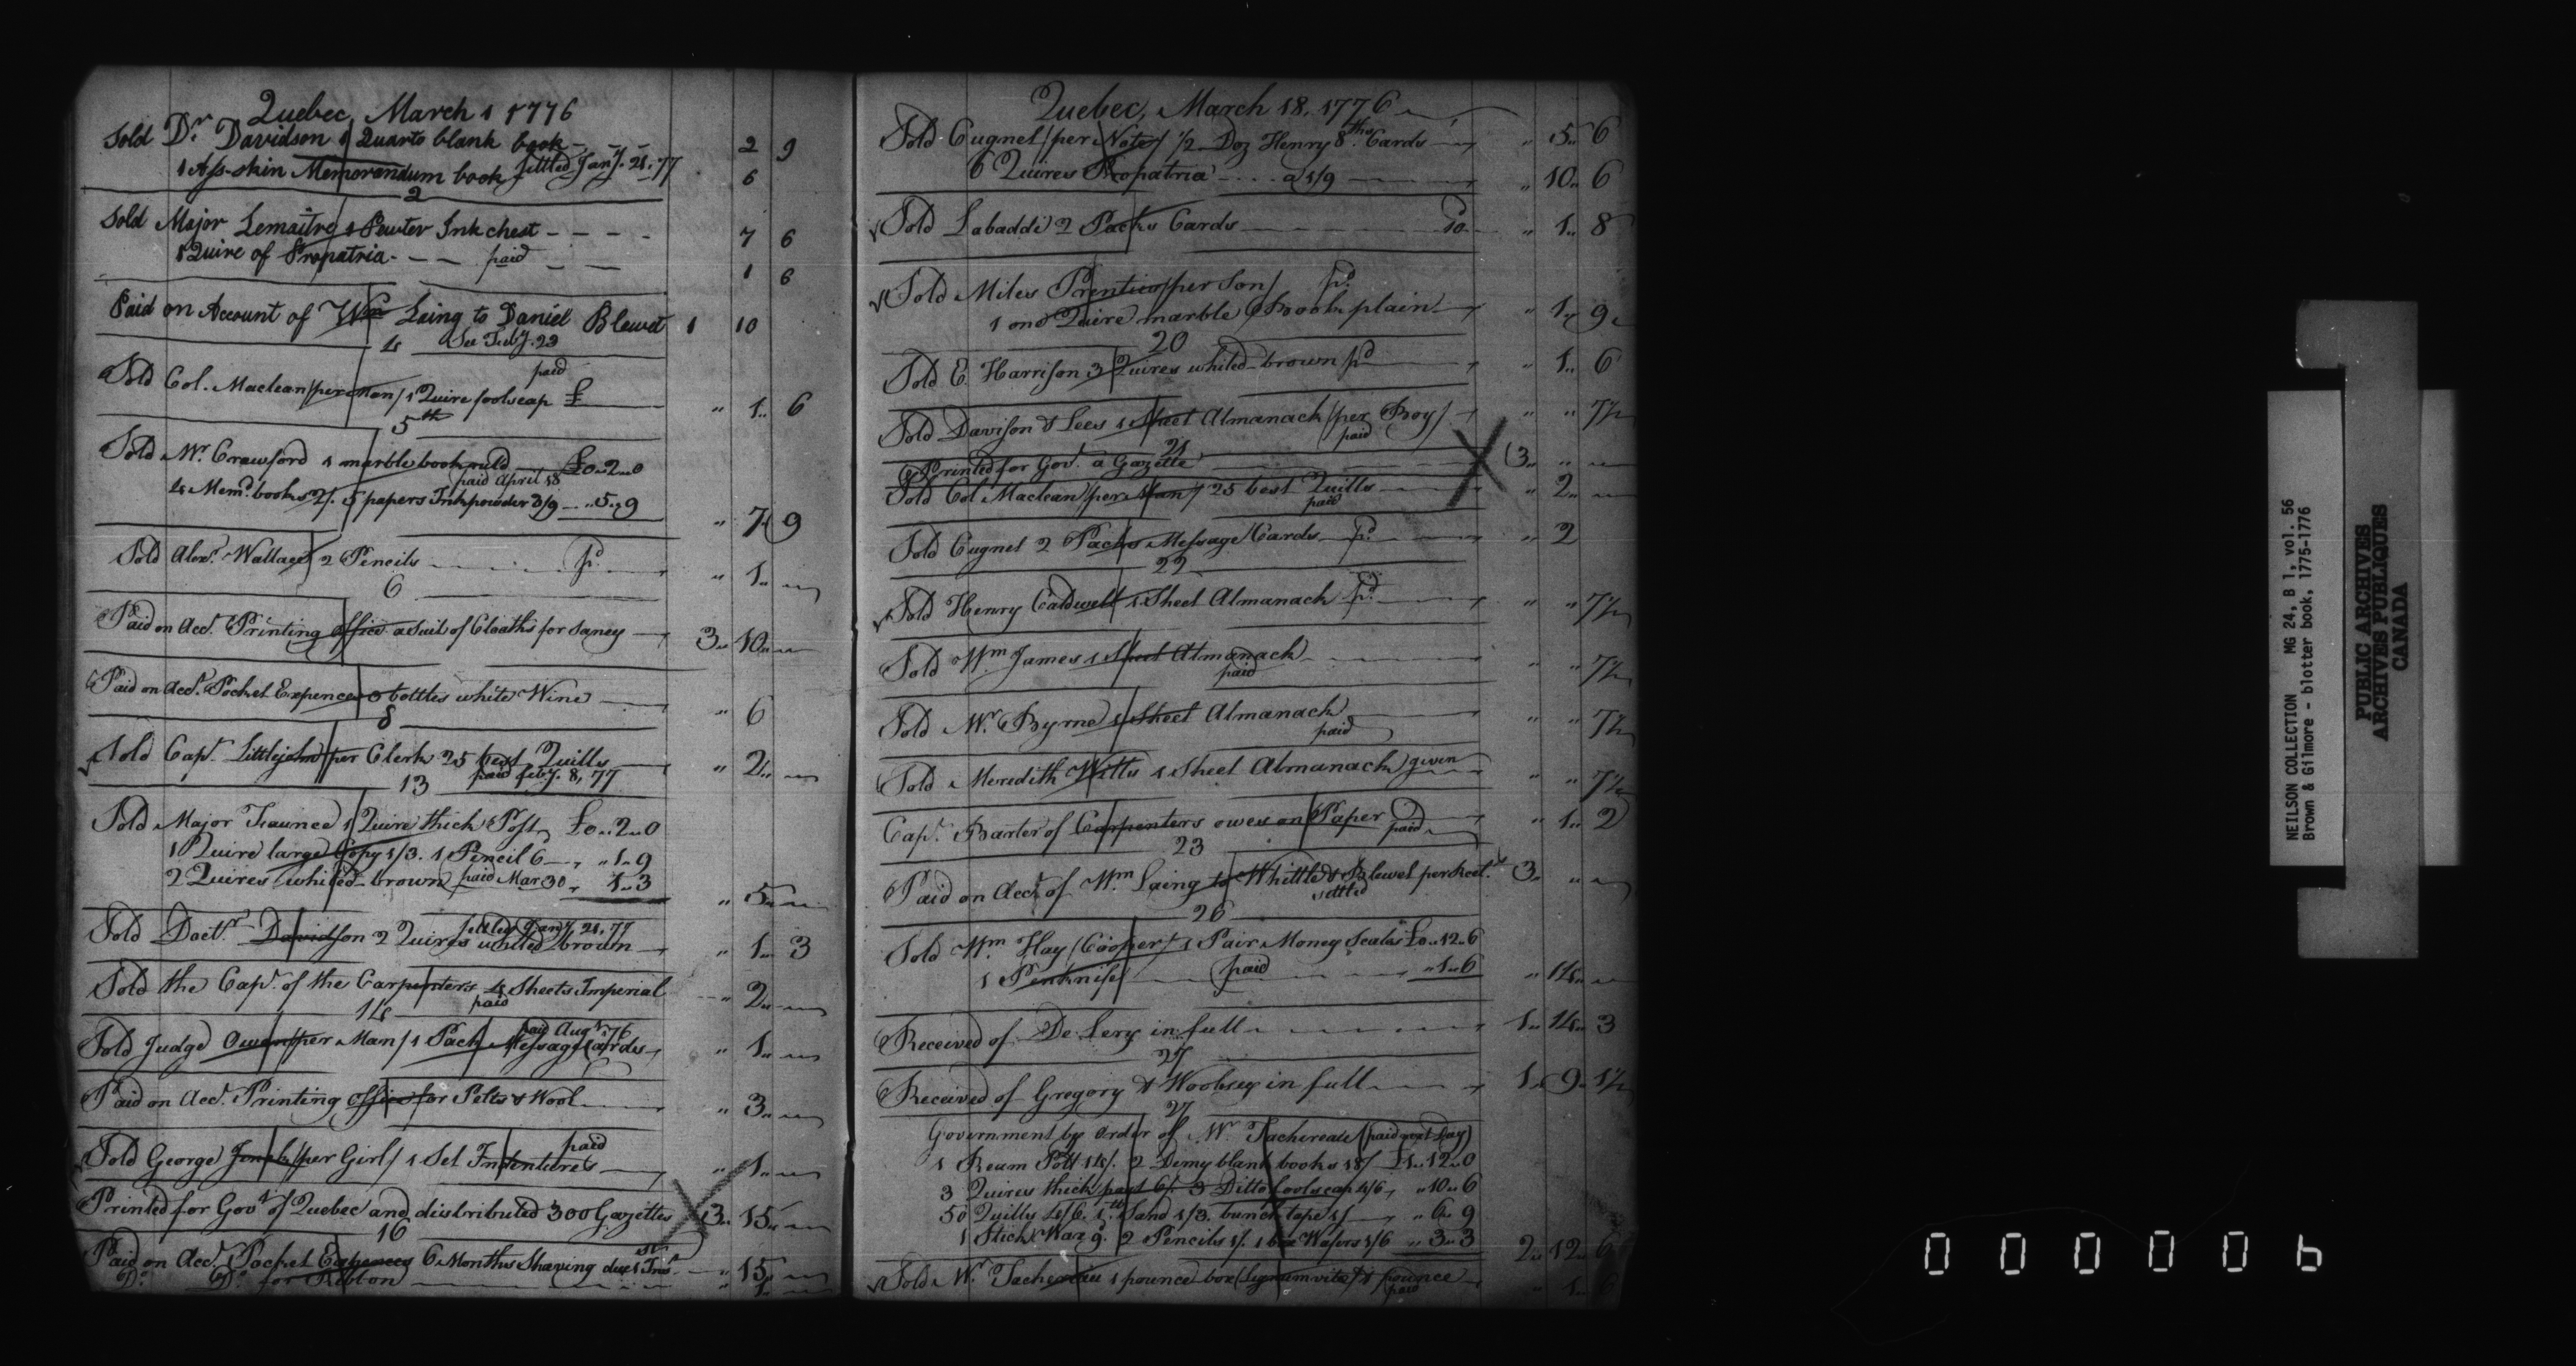 Quebec, March 1 1776
Sold Dr Davidson 1 Quarto blank book - - - 2 9
1 Ass-skin Memorandum book settled Jany. 21. 77 6
2
Sold Major Lemaitre 1 Pewter Ink chest - - - - 7 6
1 Quire of Propatria - - - paid - - 1 6
Paid on Account of Wm Laing to Daniel Blewet 1 10
See Feby. 23
4
paid
Sold Col. Maclean/per Man/ 1 Quire foolscap £ " 1.. 6
5th
Sold Mr. Crawford 1 marble book ruld £0..2..0
paid April 18
4 Memd. books 2/. 5 papers Inkpowder 3/9 - "5..9
" 7 9
Sold Alexr. Wallace 2 Pencils pd. " 1..
6
Paid on Acct. Printing Office a Suit of Cloaths for Janey 3.. 10..
Paid on Acct. Pocket Expences bottles white Wine " 6
8
Sold Capt. Littlejohn/per Clerk 25 best Quills " 2..
paid feby. 8, 77
13
Sold Major Faunce 1 Quire thick Post £0..2..0
1 Quire large Copy 1/3. 1 Pencil 6 "1..9
2 Quires whited-brown paid Mar 30 1..3
" 5..
settled Jany. 21, 77
Sold Doctr. Davidson 2 Quires whited brown " 1.. 3
Sold the Capt. of the Carpenters 4 Sheets Imperial " 2..
paid
14
paid Augt. 76
Sold Judge Owen/per Man/ 1 Pack Message Cards " 1..
Paid on Acct. Printing Office for Pelts & Wool " 3..
paid
Sold George /per Girl/ 1 Set Indentures " 1..
Printed for Govt. of Quebec and distributed 300 Gazettes 3.. 15..
16
Paid on Acct. Pocket Expences 6 Months Shaving due 1st Inst. " 15..
Do. Do. for Ribbon " 1..
Quebec, March 18, 1776
Sold Cugnet/per Note/ 1/2 Doz Henry 8ths. Cards " 5.. 6
6 Quires Propatria . . . a 1/9 " 10.. 6
Sold Labaddi 2 Packs Cards 10 " 1.. 8
Sold Miles Prentice/per Son/ pd.
1 one Quire marble Book plain " 1.. 9
20
Sold E. Harrison 3 Quires whited-brown pd " 1.. 6
Sold Davison & Lees 1 Sheet Almanack /per Boy/ " " 7 1/2
paid
21
Printed for Govt. a Gazette 3.. "
Sold Col Maclean/per Man/ 25 best Quills " 2..
paid
Sold Cugnet 2 Packs Message Cards pd. " 2
22
Sold Henry Caldwell 1 Sheet Almanack pd. " " 7 1/2
Sold Wm James 1 Sheet Almanack " " 7 1/2
paid
Sold Mr. Byrne 1 Sheet Almanack " " 7 1/2
paid
Sold Meredith Wills 1 Sheet Almanack given " " 7 1/2
Capt. Barter of Carpenters owes on Paper paid " 1.. 2
23
Paid on Acct. of Wm Laing to Whittle & Blewet per Rect. 3.. "
settled
26
Sold Wm Hay (Cooper) 1 Pair Money Scales £0..12..6
1 Penknife paid "1..6 " 14..
Received of De Lery in full 1.. 14.. 3
27
Received of Gregory & Woolsey in full 1.. 9.. 1 1/2
27
Government by order of Mr. Tachereau (paid next Day)
1 Ream Pott 14/. 2 Demy blank books 18/ £1..12..0
3 Quires thick post 6/. 3 Ditto foolscap 4/6, "10..6
50 Quills 4/6. Sand 1/3. bunch tape 1/ " 6..9
1 Stick Wax 9. 2 Pencils 1/. 1 box Wafers 1/6 " 3..3
2.. 12.. 6
Sold Mr. Tachereau 1 pounce box (Lignumvitae) & pounce " 1.. 6
paid
NEILSON COLLECTION MG 24, B 1, vol. 56
Brown & Gilmore - blotter book, 1775-1776
PUBLIC ARCHIVES
ARCHIVES PUBLIQUES
CANADA
000006